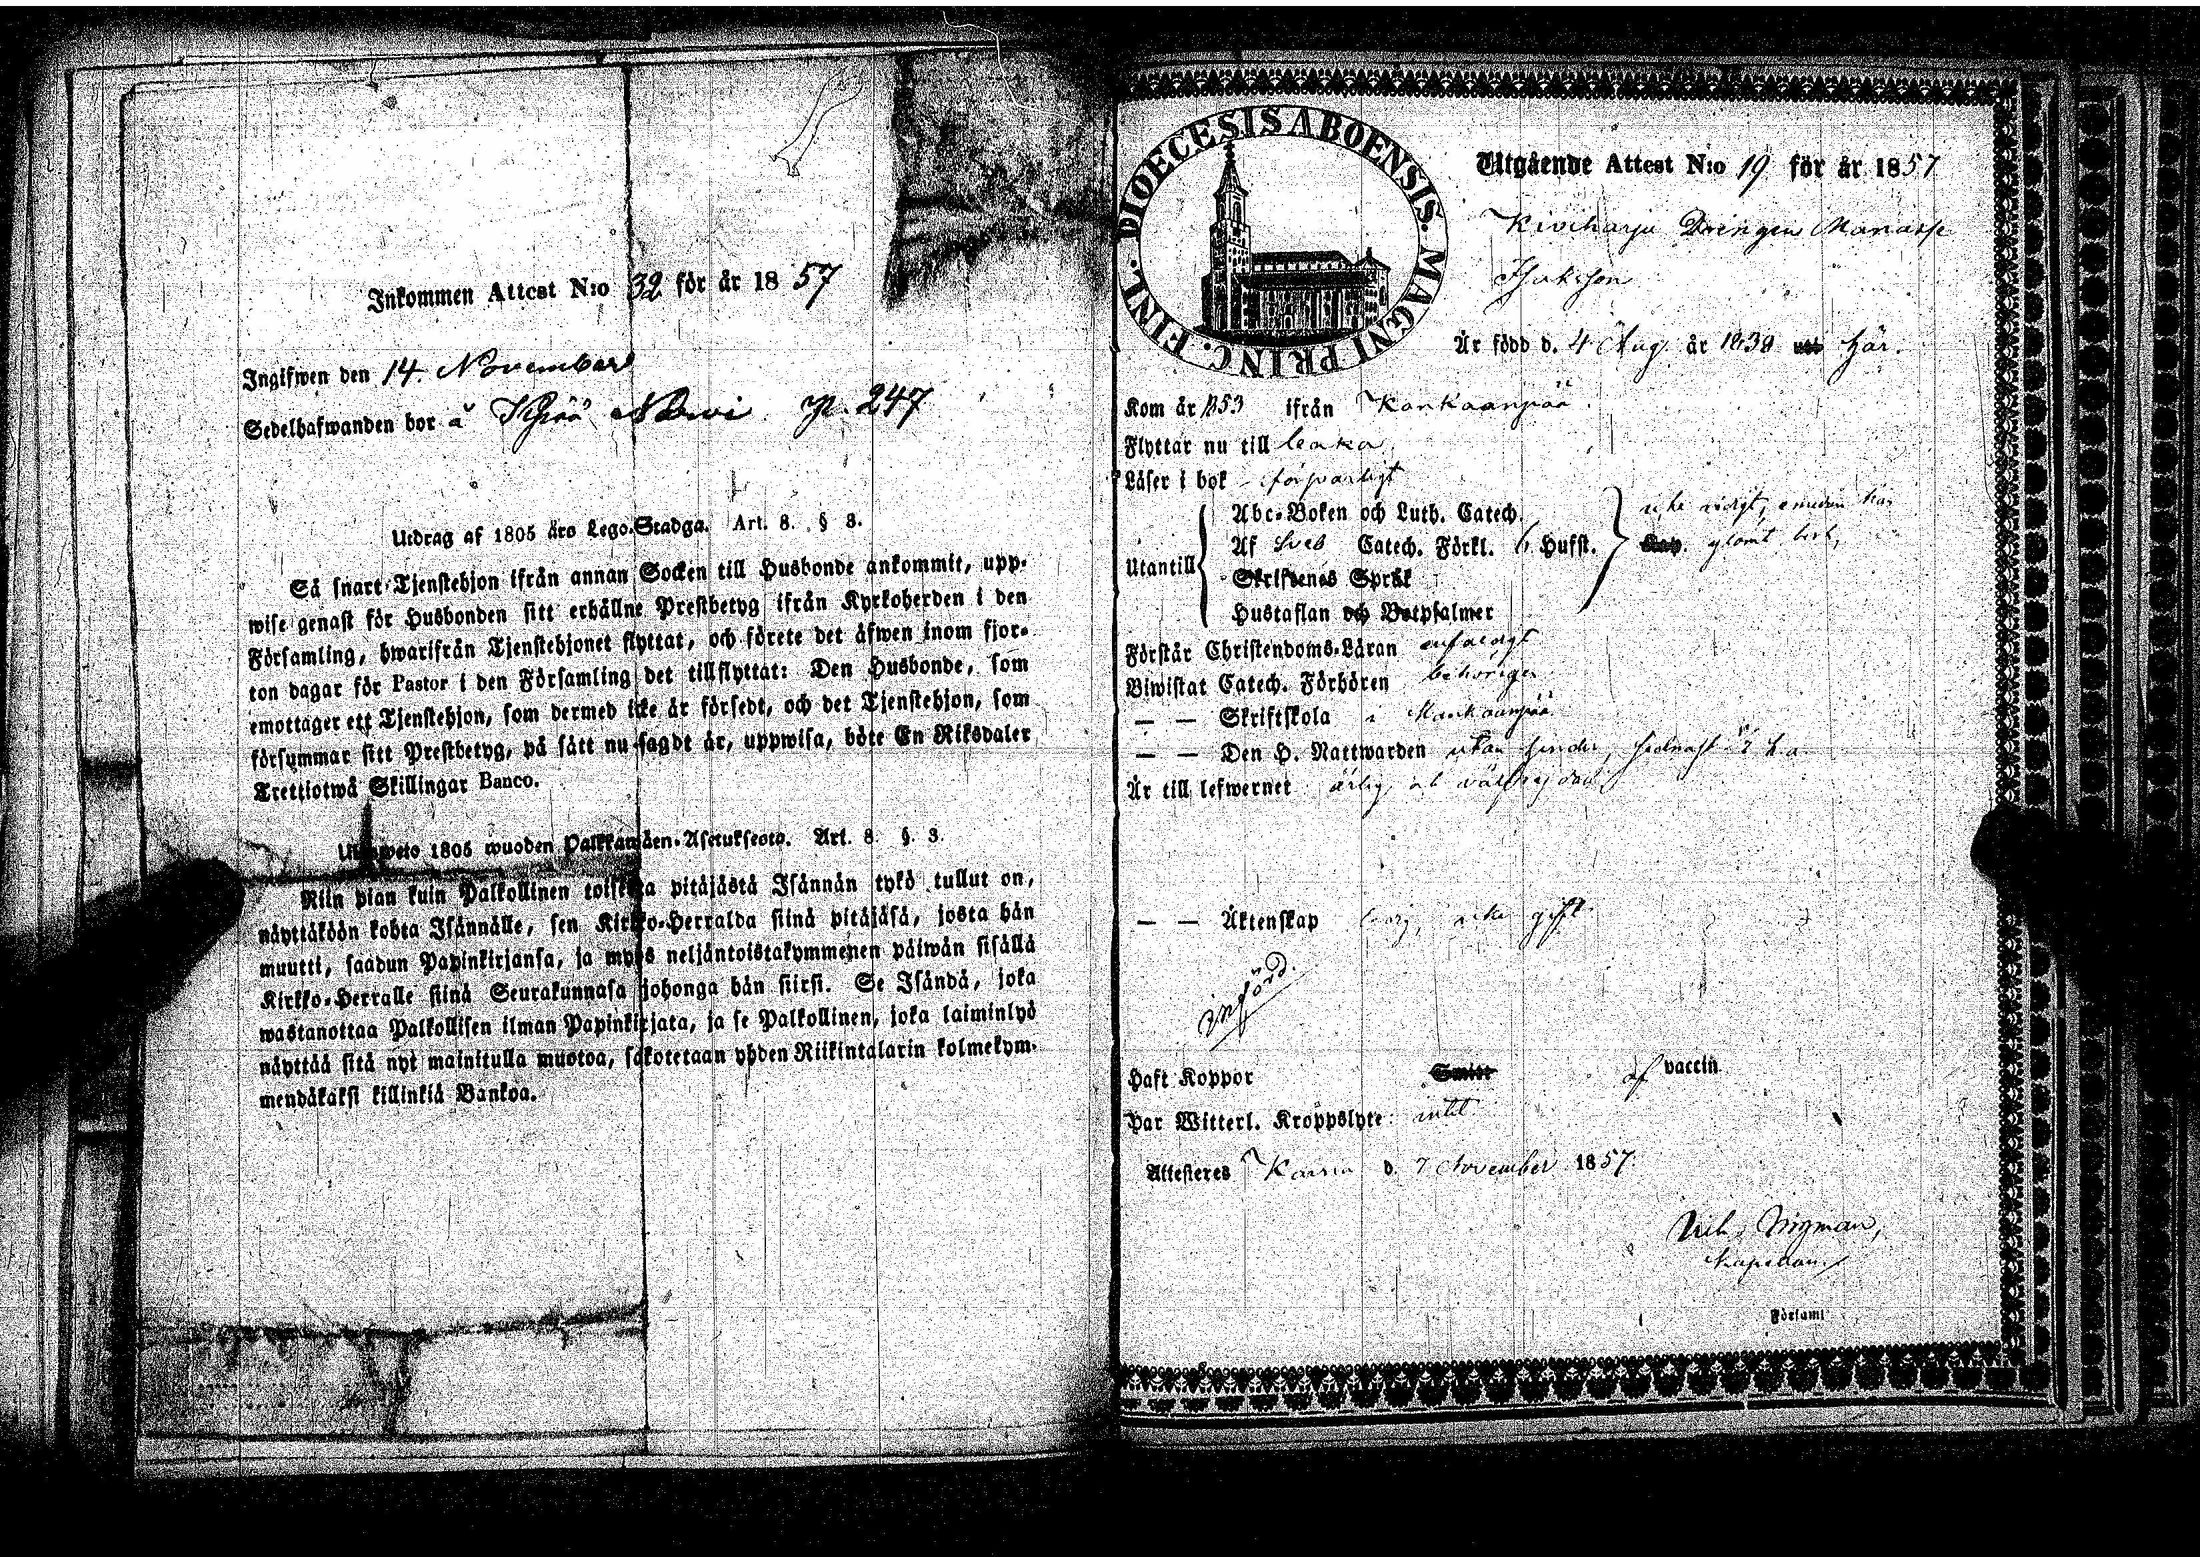 Inkommen Attest N:o 32 för år 1857
Ingifwen den 14 November
Sedelhafwanden bor å p. 247
Utdrag af 1805 års Lego-Stadga. Art. 8. § 3.
Så snart Tjenstehjon ifrån annan Socken till Husbonde ankommit, upp-
wise genast för Husbonden sitt erhållne Prestbetyg ifrån Kyrkoherden i den
Församling, hwarifrån Tjenstehjonet flyttat, och förete det äfwen inom fjor-
ton dagar för Pastor i den Församling det tillflyttat: Den Husbonde, som
emottager ett Tjenstehjon, som dermed icke är försedt, och det Tjenstehjon, som
försummar sitt Prestbetyg, på sätt nu sagdt är, uppwisa, böte En Riksdaler
Trettiotwå Skillingar Banco.
1805 wuoden Palkkawäen-Asetuksesta. Art. 8 §. 3.
Niin pian kuin Palkollinen toisesta pitäjästä Isännän tykö tullut on,
näyttäköön kohta Isännälle, sen Kirkko-Herralda siinä pitäjäsä, josta hän
muutti, saadun Papinkirjansa, ja myös neljäntoistakymmenen päiwän sisällä
Kirkko-Herralle siinä Seurakunnasa johonga hän siirsi. Se Isändä, joka
wastanottaa Palkollisen ilman Papinkirjata, ja se Palkollinen, joka laiminlyö
näyttää sitä nyt mainitulla muotoa, sakotetaan yhden Riikintalarin kolmekym-
mendäkaksi killinkiä Bankoa.
DIOECESIS ABOENSIS. MAGNI PRINC. FINL.
Utgående Attest N:o 19 för år 1857
Kiviharju Drengen Manasse
Isaksson
Är född d. 4 Aug. år 1839 här.
Kom år 1853 ifrån Kankaanpää
Flyttar nu till
Läser i bok försvarligt
Utantill
Abc-Boken och Luth. Catech.
Af Sveb Catech. Förkl. Husfl.
Skriftenes Språk
Hustaflan och Botpsalmer
icke redigt, emedan han
glömt
Förstår Christendoms-Läran enfaldigt
Biwistat Catech. Förhören behörigen
— — Skriftskola i Kankaanpää
— — Den H. Nattwarden utan hinder, sednast
Är till lefwernet ärlig och välfrejdad
— — Äktenskap icke gift
införd.
Haft Koppor Smitt af vaccin
Har Witterl. Kroppslyte intet
Attesteres d. 7 November 1857.
Kapellan.
Församl